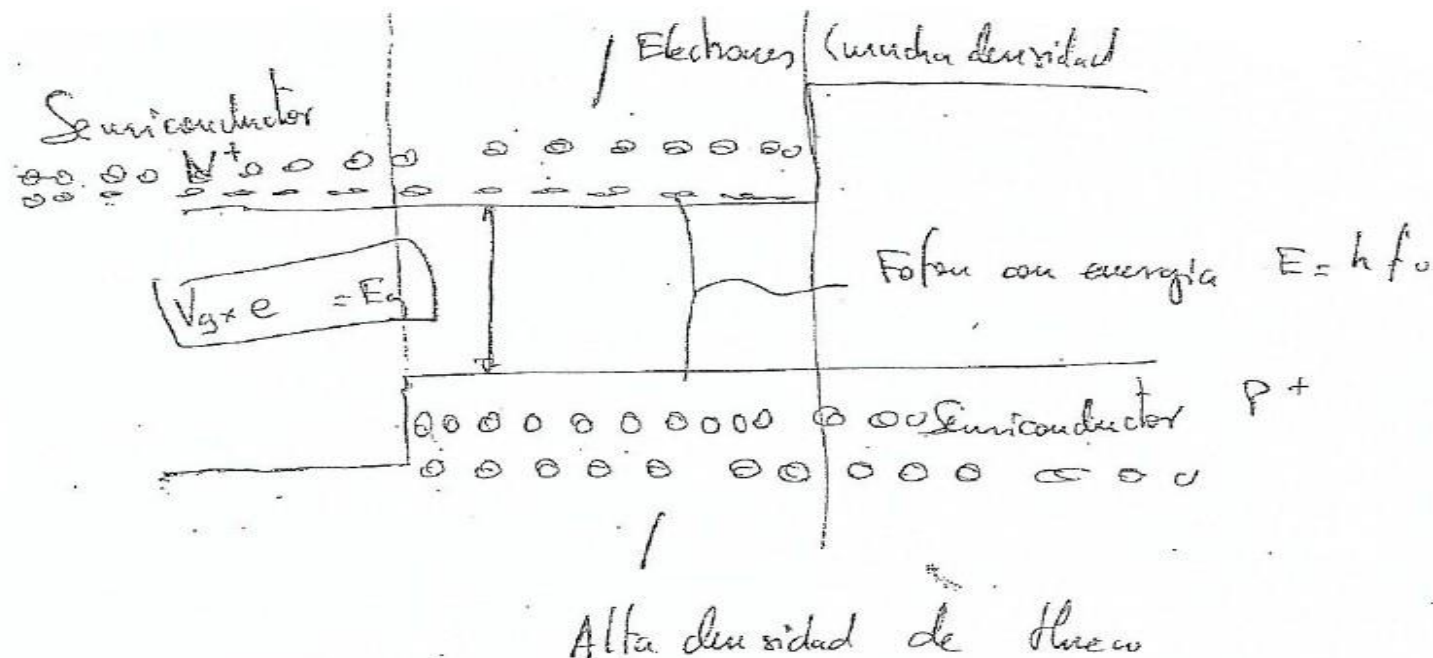 Electrones (mucha densidad
Semiconductor
N+
Vg x e = Eg
Foton con energia E = h f
Semiconductor P+
Alta densidad de Hueco